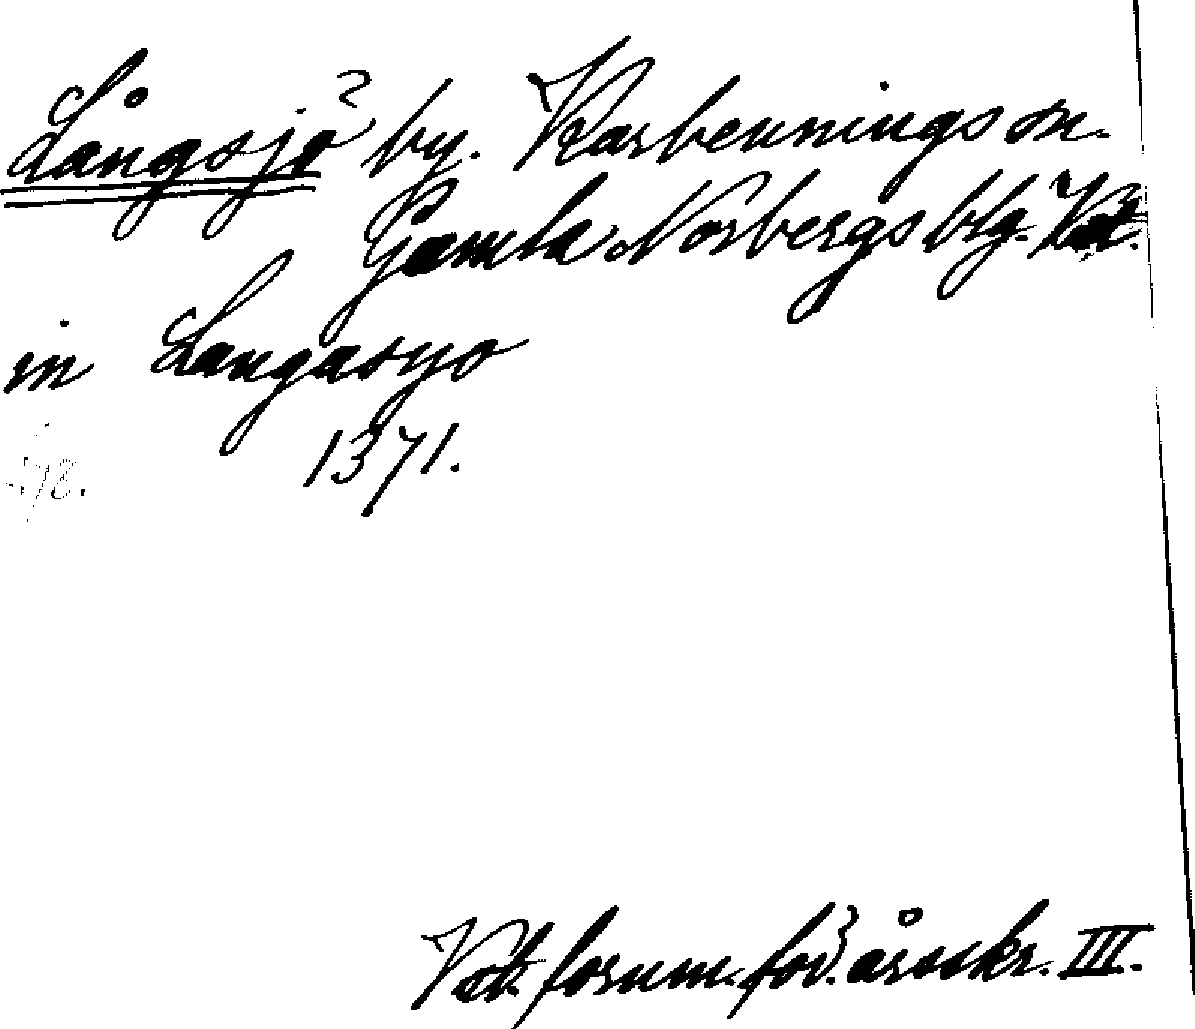 Långsjö by. Karbennings sn.
Gamla Norbergs blg. Vstm.
in Langasyo
1371.
Vstm. fornm. för. årsskr. III.